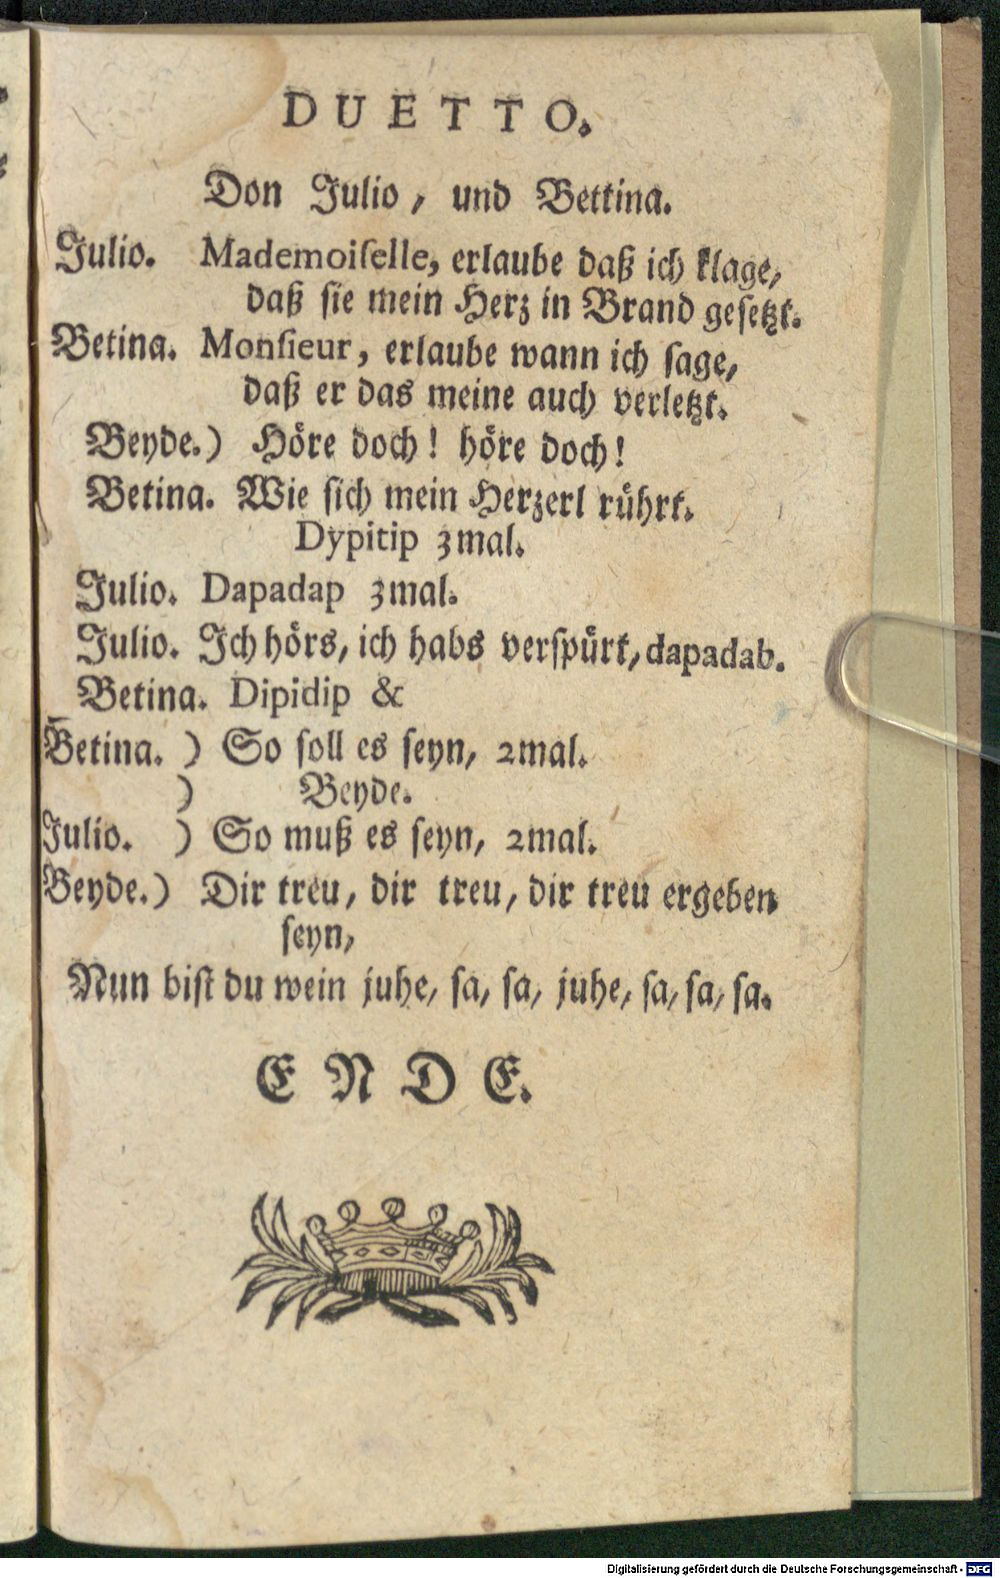 DUETTO.
Don Julio, und Bettina.
Julio. Mademoiselle, erlaube daß ich klage,
daß sie mein Herz in Brand gesetzt.
Betina. Monsieur, erlaube wann ich sage,
daß er das meine auch verletzt.
Beyde.) Höre doch! höre doch!
Betina. Wie sich mein Herzerl rührt.
Dypitip 3mal.
Julio. Dapadap 3mal.
Julio. Ich hörs, ich habs verspürt, dapadab.
Betina. Dipidip &
Betina. ) So soll es seyn, 2mal.
) Beyde.
Julio. ) So muß es seyn, 2mal.
Beyde.) Dir treu, dir treu, dir treu ergeben
seyn,
Nun bist du wein juhe, sa, sa, juhe, sa, sa, sa.
ENDE.
Digitalisierung gefördert durch die Deutsche Forschungsgemeinschaft - DFG